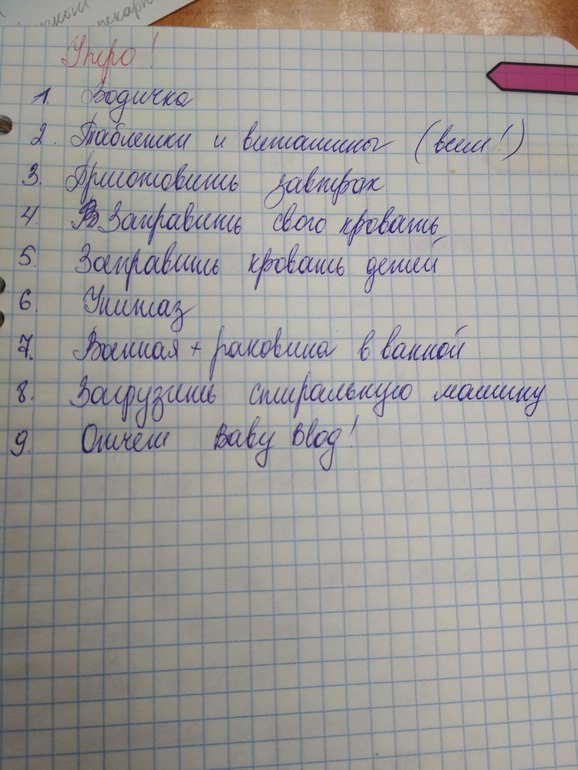 пекарн
Утро!
1. Водичка
2. Таблетки и витамины (всем!)
3. Приготовить завтрак
4. Заправить свого кровать
5. Заправить кровать детей
6. Унитаз
7. Ванная + раковина в ванной
8. Загрузить стиральную машину
9. Отчет Baby Blog!